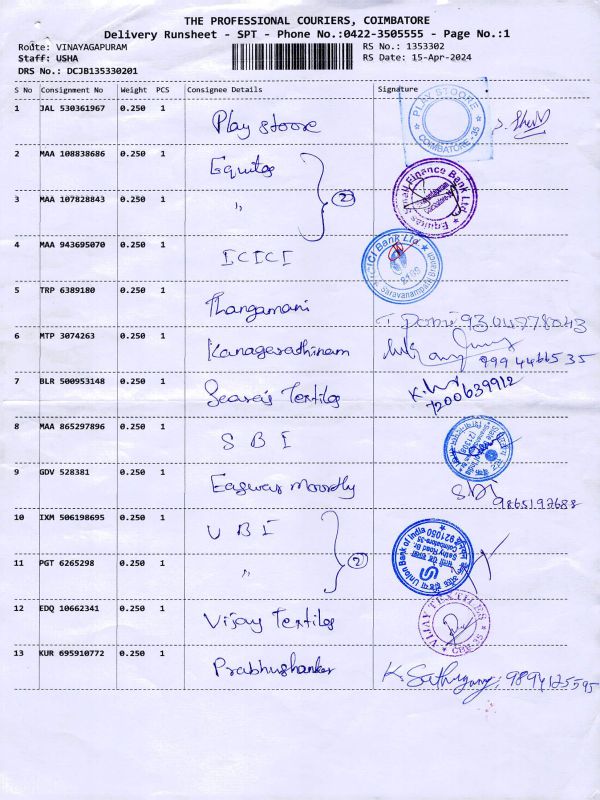 THE PROFESSIONAL COURIERS, COIMBATORE
Delivery Runsheet - SPT - Phone No.:0422-3505555 - Page No.:1
Route: VINAYAGAPURAM RS No.: 1353302
Staff: USHA RS Date: 15-Apr-2024
DRS No.: DCJB135330201
S No Consignment No Weight PCS Consignee Details Signature
1 JAL 530361967 0.250 1 Play stoore
PLAY STOORE
COIMBATORE-35
2 MAA 108838686 0.250 1 Equitas
3 MAA 107828843 0.250 1 " 2
Equitas Small Finance Bank Ltd.
4 MAA 943695070 0.250 1 ICICI
ICICI Bank Ltd
Saravanampatti Branch
5 TRP 6389180 0.250 1 Thangamani
6 MTP 3074263 0.250 1 Kanagarathinam
9994466535
7 BLR 500953148 0.250 1 Textiles
7200639912
8 MAA 865297896 0.250 1 SBI
9 GDV 528381 0.250 1 Easwar Moorthy
9865197688
10 IXM 506198695 0.250 1 UBI
11 PGT 6265298 0.250 1 " 2
Union Bank of India
921050
Sathy Road Br.
Coimbatore-35
12 EDQ 10662341 0.250 1 Vijay Textiles
VIJAY TEXTILES
CBE-35
13 KUR 695910772 0.250 1 Prabhushanker